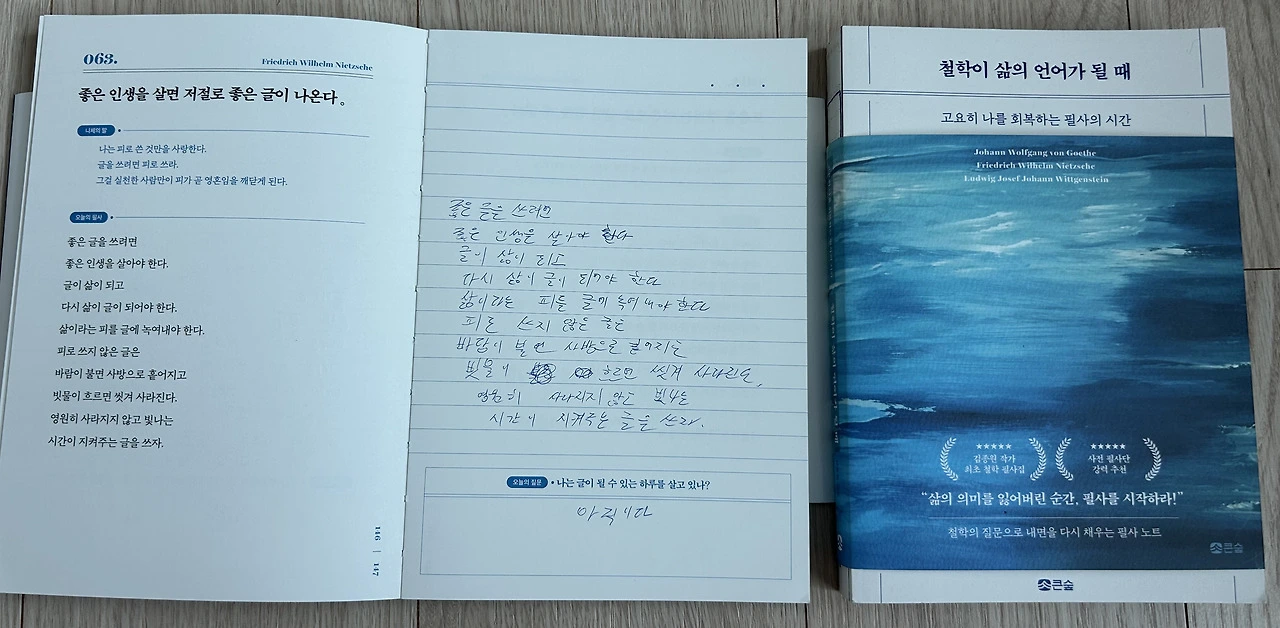 063.
Friedrich Wilhelm Nietzsche
좋은 인생을 살면 저절로 좋은 글이 나온다。
니체의 말
나는 피로 쓴 것만을 사랑한다.
글을 쓰려면 피로 쓰라.
그걸 실천한 사람만이 피가 곧 영혼임을 깨닫게 된다.
오늘의 필사
좋은 글을 쓰려면
좋은 인생을 살아야 한다.
글이 삶이 되고
다시 삶이 글이 되어야 한다.
삶이라는 피를 글에 녹여내야 한다.
피로 쓰지 않은 글은
바람이 불면 사방으로 흩어지고
빗물이 흐르면 씻겨 사라진다.
영원히 사라지지 않고 빛나는
시간이 지켜주는 글을 쓰자.
146 | 147
좋은 글을 쓰려면
좋은 인생을 살아야 한다
글이 삶이 되고
다시 삶이 글이 되어야 한다
삶이라는 피를 글에 녹여내야 한다
피로 쓰지 않은 글은
바람이 불면 사방으로
빗물이 흐르면 씻겨
영원히 사라지지 않고 빛나는
시간이 지켜주는 글을 쓰라.
오늘의 질문
나는 글이 될 수 있는 하루를 살고 있나?
아직이다
철학이 삶의 언어가 될 때
고요히 나를 회복하는 필사의 시간
Johann Wolfgang von Goethe
Friedrich Wilhelm Nietzsche
Ludwig Josef Johann Wittgenstein
★★★★★
김종원 작가
최초 철학 필사집
★★★★★
사전 필사단
강력 추천
“삶의 의미를 잃어버린 순간, 필사를 시작하라!”
철학의 질문으로 내면을 다시 채우는 필사 노트
큰숲
큰숲